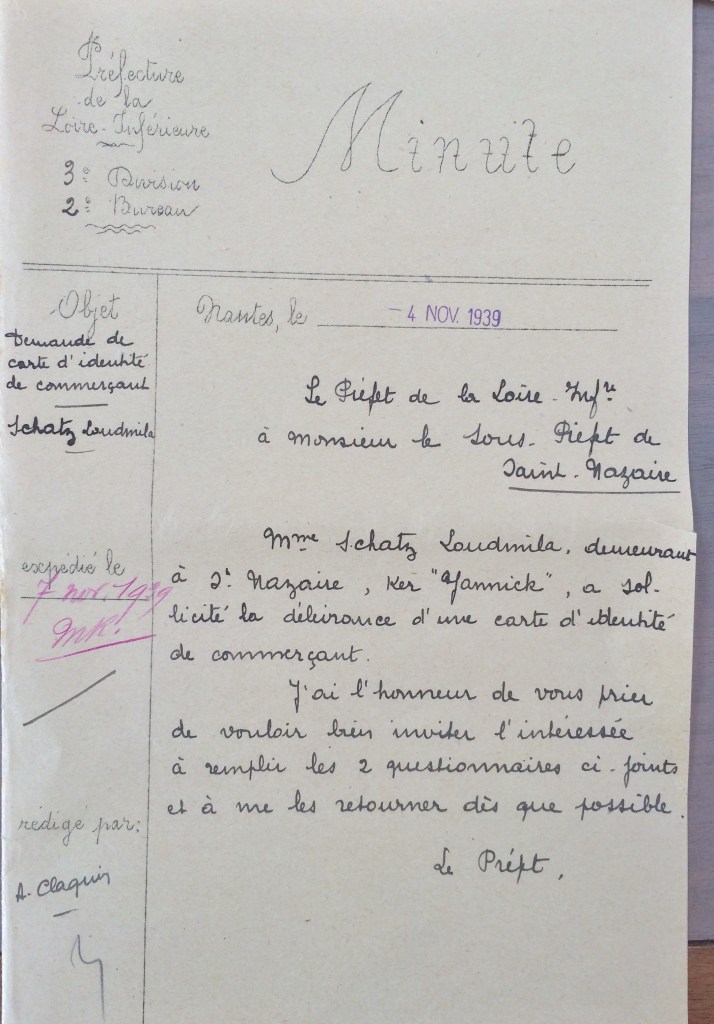 Préfecture
de la
Loire-Inférieure
3e Division
2e Bureau
Minute
Objet
Demande de
carte d'identité
de commerçant
Schatz Loudmila
expédié le
7 nov. 1939
MK!
rédigé par:
A. Claquin
Nantes, le - 4 NOV. 1939
Le Préfet de la Loire-Infre
à Monsieur le Sous-Préfet de
Saint-Nazaire
Mme Schatz Loudmila, demeurant
à St Nazaire, Ker "Yannick", a sol-
licité la délivrance d'une carte d'identité
de commerçant.
J'ai l'honneur de vous prier
de vouloir bien inviter l'intéressée
à remplir les 2 questionnaires ci-joints
et à me les retourner dès que possible.
Le Préfet,